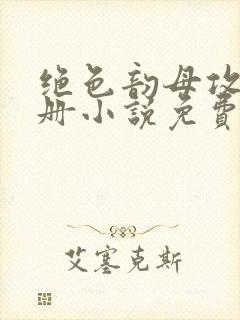 绝色韵母攻
册小说免费
艾塞克斯